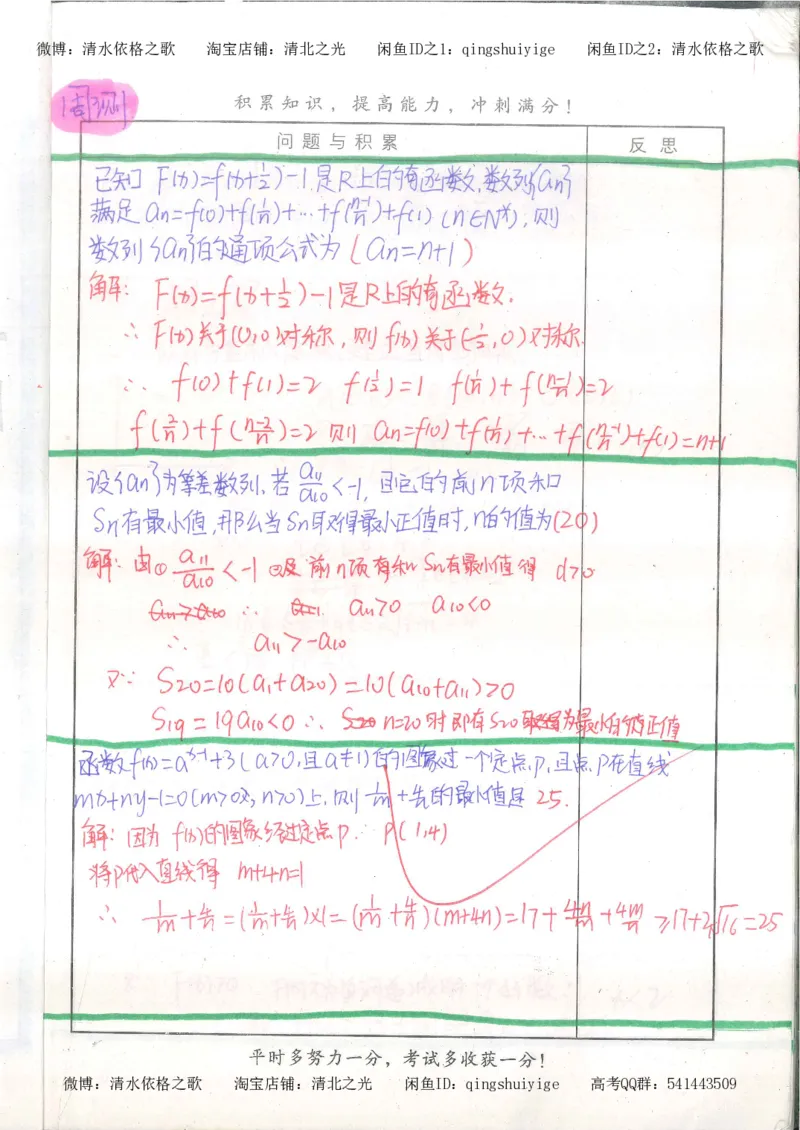 微博：清水依格之歌 淘宝店铺：清北之光 闲鱼ID之1：qingshuiyige 闲鱼ID之2：清水依格之歌
周测
积累知识，提高能力，冲刺满分！
问题与积累 反思
已知 F(x)=f(x+1/2)-1是R上的奇函数,数列{an}
满足 an=f(0)+f(1/n)+…+f(n-1/n)+f(1) (n∈N*), 则
数列{an}的通项公式为 (an=n+1)
解: F(x)=f(x+1/2)-1是R上的奇函数.
∴ F(x)关于(0,0)对称, 则 f(x)关于(1/2,0)对称.
∴ f(0)+f(1)=2 f(1/2)=1 f(1/n)+f(n-1/n)=2
f(2/n)+f(n-2/n)=2 则 an=f(0)+f(1/n)+…+f(n-1/n)+f(1)=n+1
设{an}为等差数列.若 a11/a10<-1, 且它的前n项和
Sn有最小值,那么当Sn取得最小正值时,n的值为(20)
解: 由① a11/a10<-1 ②及前n项和 Sn有最小值得 d>0
∴ a11>0 a10<0
∴ a11>-a10
又∵ S20=10(a1+a20)=10(a10+a11)>0
S19=19a10<0 ∴ n=20时即有S20为最小的正值
函数f(x)=a^{x-1}+3(a>0,且a≠1)的图象过一个定点P,且点P在直线
mx+ny-1=0(m>0,n>0)上, 则 1/m+4/n的最小值是 25.
解: 因为 f(x)的图象经过定点P ∴ P(1,4)
将P代入直线得 m+4n=1
∴ 1/m+4/n=(1/m+4/n)×1=(1/m+4/n)(m+4n)=17+4n/m+4m/n≥17+2√16=25
平时多努力一分，考试多收获一分！
微博：清水依格之歌 淘宝店铺：清北之光 闲鱼ID：qingshuiyige 高考QQ群：541443509